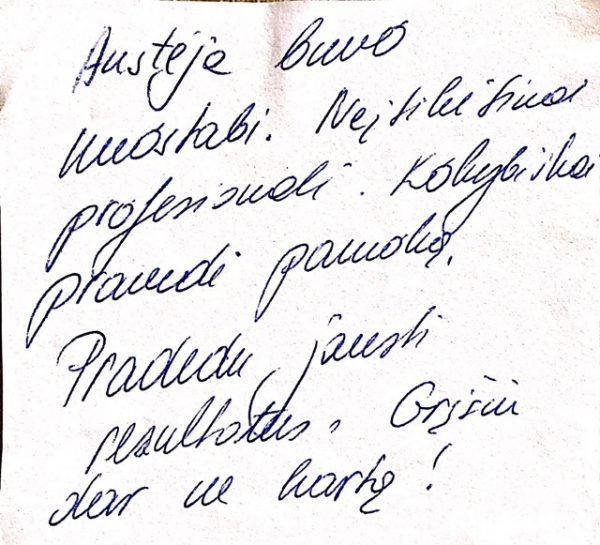 Austėja buvo
nuostabi. Neįtikėtinai
profesionali. Kokybiškai
pravedi pamoką.
Pradedu jausti
rezultatus. Grįšiu
dar ne kartą!